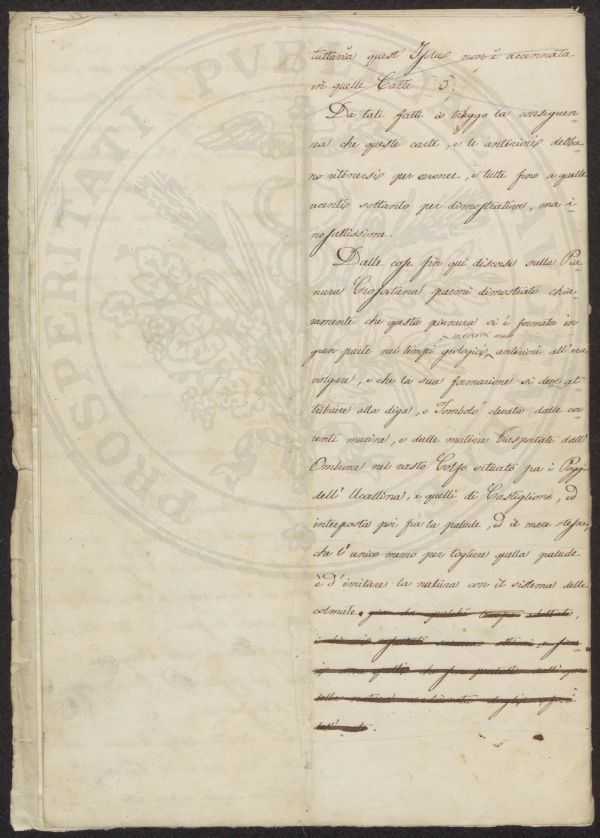 tuttavia quest' Isola non è accennata
in quelle Carte (5)
Da tali fatti io traggo la conseguen-
za che queste carte, e le anteriori debba-
no ritenersi per erronee, e tutte fino a quelle
recenti soltanto per dimostrative, ma i-
nesattissime.
Dalle cose fin qui discorse sulla Pia-
nura Grossetana parmi dimostrato chia-
ramente che questa pianura si è formata in
gran parte nei tempi geologici, anteriori all'era
volgare, e che la sua formazione si deve at-
tribuire alla diga, o Tombolo elevato dalle cor-
renti marine, e dalle materie trasportate dall'
Ombrone nel vasto Golfo situato fra i Poggi
dell' Uccellina, e quelli di Castiglione, ed
interposta poi fra la palude, ed il mare stesso,
che l'unico mezzo per togliere quella palude
è d'imitare la natura con il sistema delle
colmate.
PROSPERITATI PUBLICAE